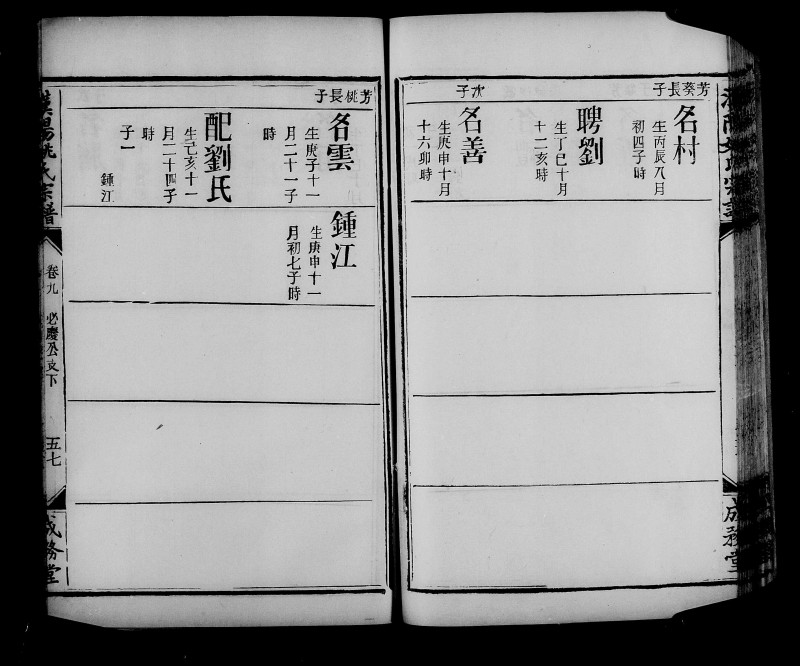 芳葵長子
名村
生丙辰八月
初四子時
聘劉
生丁巳十月
十二亥時
次子
名善
生庚申十月
十六卯時
成務堂
芳桃長子
名雲
生庚子十一
月二十一子
時
配劉氏
生己亥十一
月二十四子
時
子一
鍾江
鍾江
生庚申十一
月初七子時
漢陽姚氏宗譜
卷九
必慶公支下
五七
成務堂